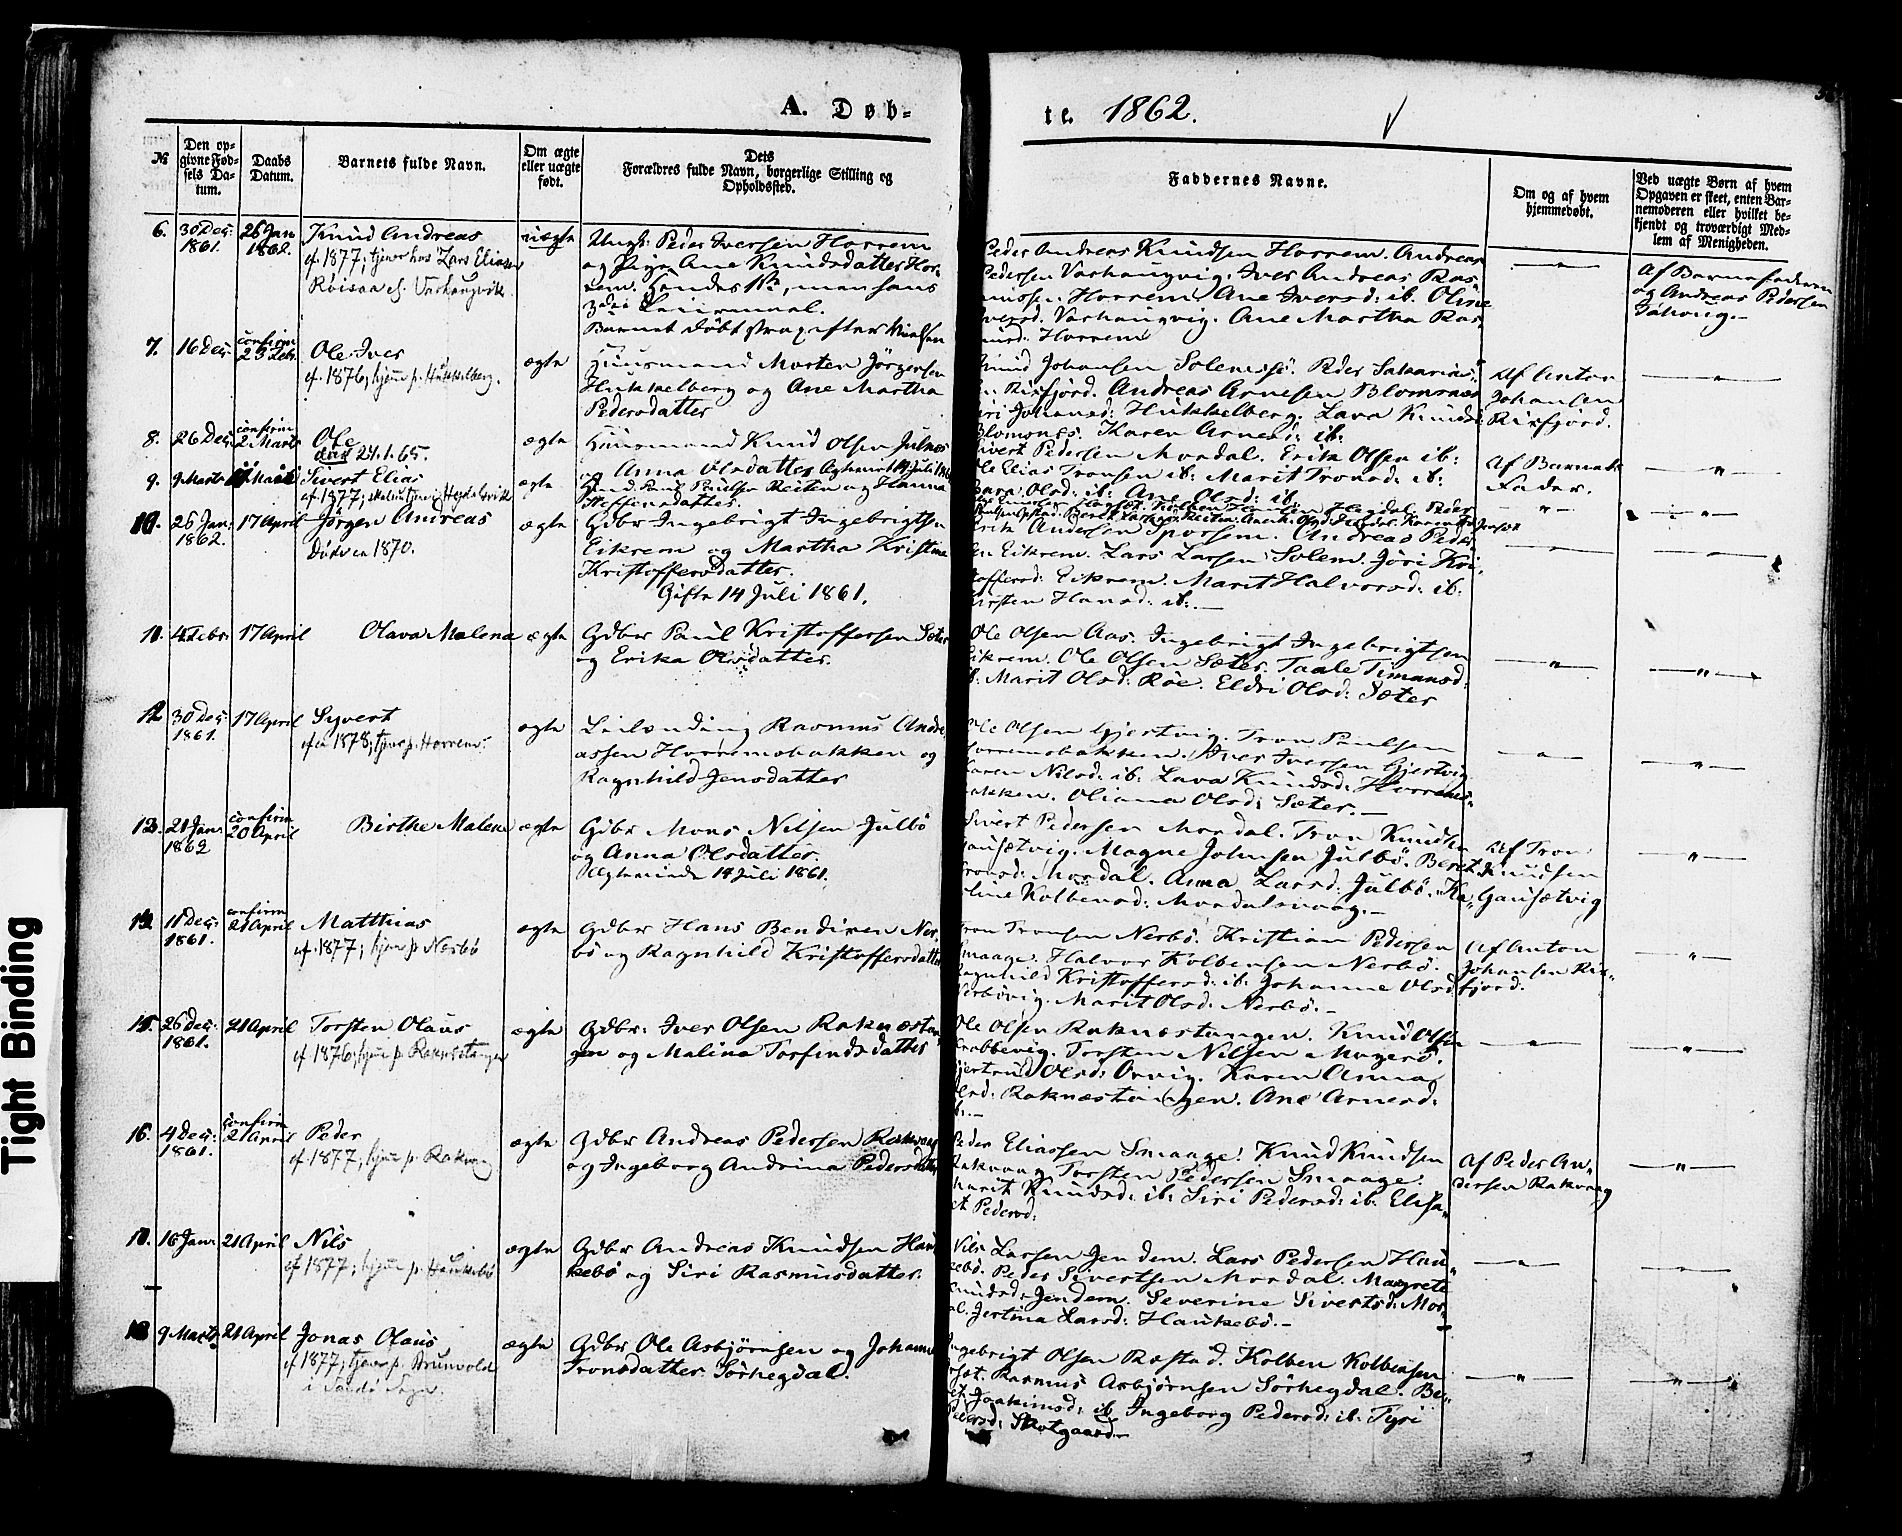 A. Døb-
te. 1862.
№
Den opgivne Fødsels Datum.
Daabs Datum.
Barnets fulde Navn.
Om ægte eller uægte født.
Dets Forældres fulde Navn, borgerlige Stilling og Opholdssted.
Faddernes Navne.
Om og af hvem hjemmedøbt.
Ved uægte Børn af hvem Opgaven er skeet, enten Barnemoderen eller hvilket bekjendt og troværdigt Medlem af Menigheden.
6. 30 Dec: 1861. 26 Jan 1862. Knud Andreas uægte
cf. 1877; tjener hos Lars Eliasen
Røisaa
Ungk: Peder Iversen Horrem
og Pige Ane Knudsdatter Hor-
rem. Hendes 1ste, men hans
3die Leiermaal.
Barnet døbt strax efter
Peder Andreas Knudsen Horrem. Andreas
Pedersen Varhaugvig. Iver Andreas Ras-
mussen Horrem. Ane Iversd: ib. Oline
Iversd. Varhaugvig. Ane Martha Ras-
musd. Horrem
Af Barnefaderen
og Andreas Pedersen
7. 16 Dec: confirm 23 Febr. Ole Iver ægte
cf. 1876; hjem p. Hukkelberg.
Huusmand Morten Jørgensen
Hukkelberg og Ane Martha
Pedersdatter
Knud Johansen Solemsø. Peder Sakarias-
en Risfjord. Andreas Arnesen Blomsnæs
Siri Johansd: Hukkelberg. Lava Knudsd:
Blomsnæs. Karen Arnesd: ib:
Af Anton
Johansen
Risfjord.
8. 26 Dec: confirm 2 Marts Ole ægte
død 24.1.65.
Huusmand Knud Olsen Julnes
og Anna Olsdatter
Sivert Pedersen Mordal. Erik Olsen ib:
Ole Elias Tronsen ib: Marit Tronsd: ib:
Olsd: ib: Ane Olsd: ib.
Af Barnets
Fader.
9. 9 Marts Sivert Elias ægte
cf. 1877;
Paul Paulsen Reiten og Hanna
Steffensdatter.
10. 26 Jan: 1862. 17 April Jørgen Andreas ægte
Døde en 1870.
Gdbr Ingebrigt Ingebrigtsen
Eikrem og Martha Kristine
Kristoffersdatter.
Gifte 14 Juli 1861.
Erik Andersen Sporsem. Andreas Peder-
sen Eikrem. Lars Larsen Solem. Jøri Kri-
stoffersd: Eikrem. Marit Halvorsd: ib:
Kirsten Hansd: ib:
11. 4 Febr: 17 April Olava Malena ægte
Gdbr Paul Kristoffersen Sæter
og Erika Olsdatter.
Ole Olsen Aas. Ingebrigt Ingebrigtsen
Eikrem. Ole Olsen Sæter. Taale Timansd:
ib. Marit Olsd: Røe. Eldri Olsd: Sæter
12 30 Dec: 1861. 17 April Syvert ægte
cf. 1878; tjener p. Horrem.
Leilænding Rasmus Andre-
assen Horremsbakken og
Ragnhild Jensdatter
Ole Olsen Gjertvig. Tron Paulsen
Horremsbakken. Iver Iversen Gjertvig
Karen Nilsd: ib: Lava Knudsd: Horrems-
bakken. Oliana Olsd: Sæter.
13. 21 Jan: 1862 confirm 20 April Birthe Malena ægte
Gdbr Mons Nilsen Julbø
og Anna Olsdatter.
Ægteviede 14 Juli 1861.
Sivert Pedersen Mordal. Tron Knudsen
Gausætvig. Magne Johnsen Julbø. Beret
Tronsd: Mordal. Anna Larsd: Julbø. Ka-
Kolbensd: Mordalsvaag.
Af Tron
Knudsen
Gausætvig
14. 11 Dec: 1861. confirm 21 April Matthias ægte
cf. 1877; hjem p. Nerbø
Gdbr Hans Bendixen Ner-
bø og Ragnhild Kristoffersdatter
Tron Tronsen Nerbø. Kristian Pedersen
Smaage. Halvor Kolbensen Nerbø.
Ragnhild Kristoffersd: ib. Johanne Olsd
Nerbøvig. Marit Olsd: Nerbø.
Af Anton
Johansen Ris-
fjord.
15. 26 Dec: 1861. 21 April Torsten Olaus ægte
cf. 1876; hjem p. Raknestangen
Gdbr: Iver Olsen Raknæstan-
gen og Malina Torfindsdatter
Ole Olsen Raknæstangen. Knud Olsen
Krabbevig. Torsten Nilsen Magerø.
Gjertrud Olsd: Orvig. Karen Anna
Olsd: Raknæstangen. Ane Arnesd:
ib.
16. 4 Dec: 1861. confirm 21 April Peder ægte
cf. 1877; hjem p. Rakvaag
Gdbr Andreas Pedersen Rakvaag
og Ingeborg Andrina Pedersdatter
Peder Eliassen Smaage. Knud Knudsen
Rakvaag. Torsten Pedersen Smaage.
Marit Knudsd: ib: Siri Pedersd: ib. Elisa-
bet Pedersd:
Af Peder An-
dersen Rakvaag
17. 16 Jan: 21 April Nils ægte
cf. 1877; hjem p. Haukebø
Gdbr Andreas Knudsen Hau-
kebø og Siri Rasmusdatter.
Nils Larsen Jendem. Lars Pedersen Hau-
kebø. Peder Sivertsen Mordal. Margrete
Knudsd: Jendem. Severine Sivertsd: Mor-
dal. Jertina Larsd: Haukebø.
18 9 Marts 21 April Jonas Olaus ægte
cf. 1877; tjener p. Brunvold
i Sandø Sogn
Gdbr Ole Asbjørnsen og Johanne
Tronsdatter Sørhegdal.
Ingebrigt Olsen Røstad. Kolben Kolbensen
Rasmus Asbjørnsen Sørhegdal. Be-
ret Joakimsd: ib Ingeborg Pedersd: ib. Tyri
Pedersd: Skotgaard
Tight Binding